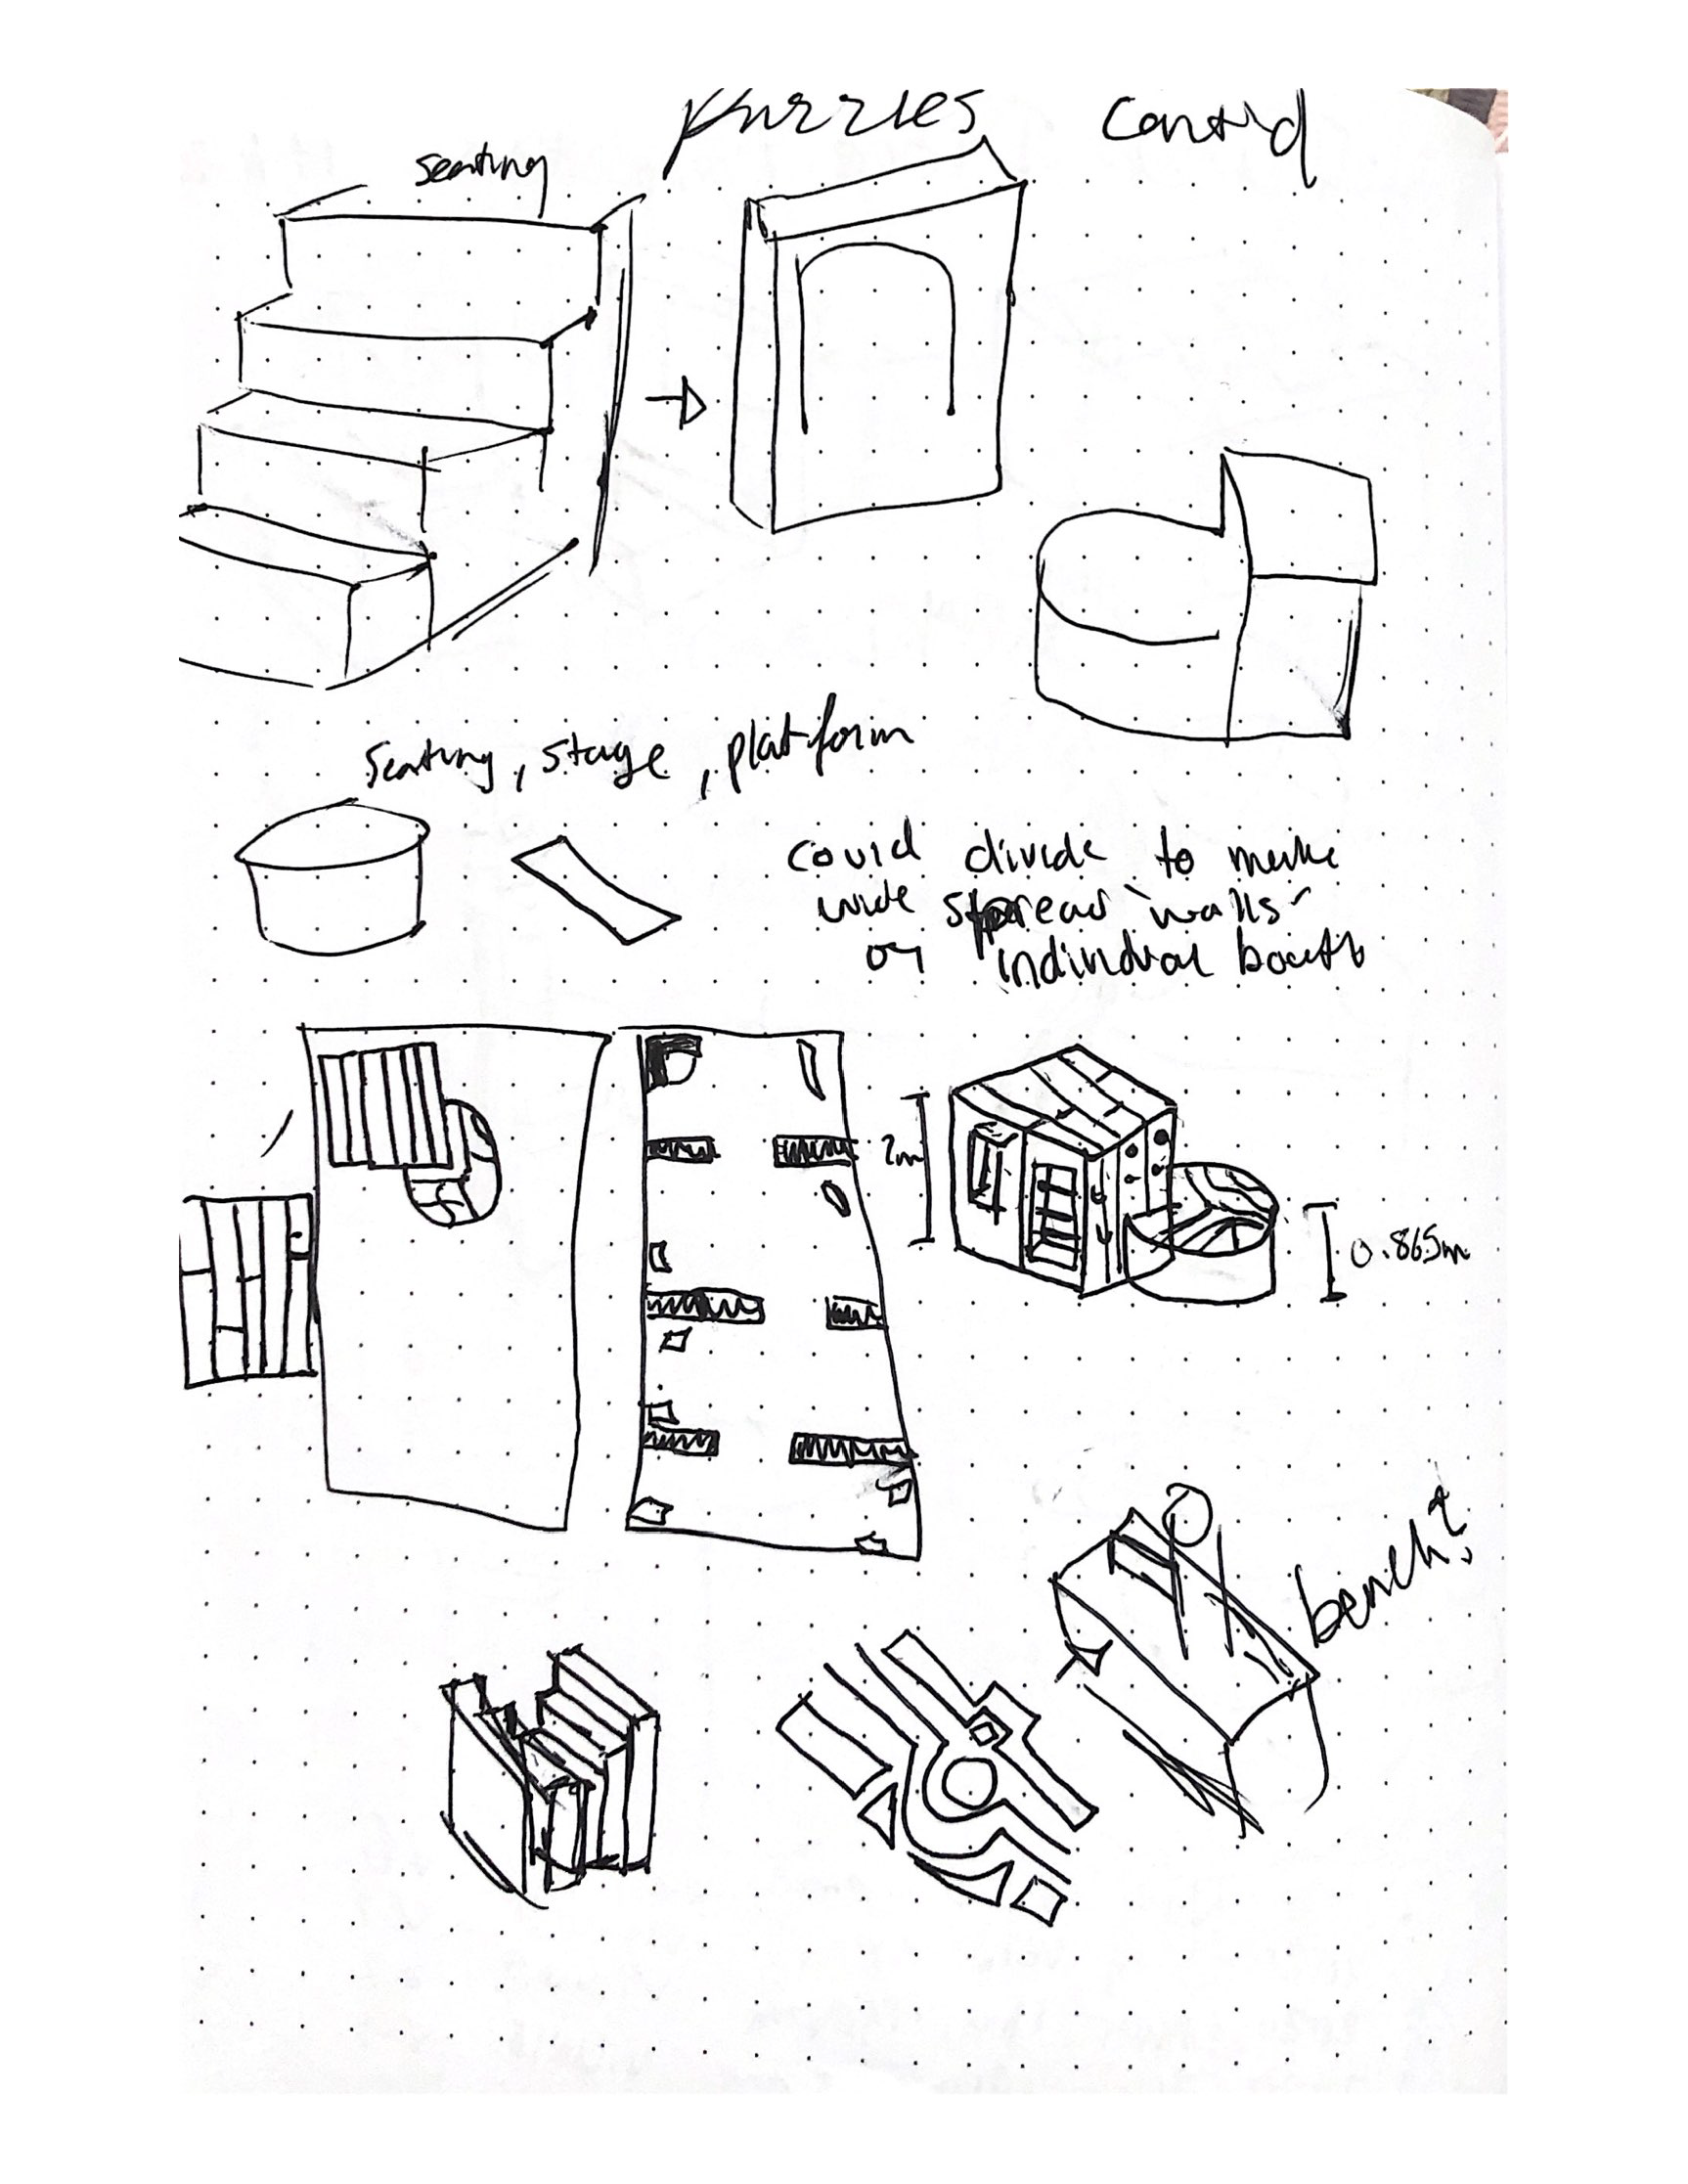 puzzles cont'd
seating
seating, stage, platform
could divide to make
wide spread "walls"
or individual booths
2m
0.865m
bench?